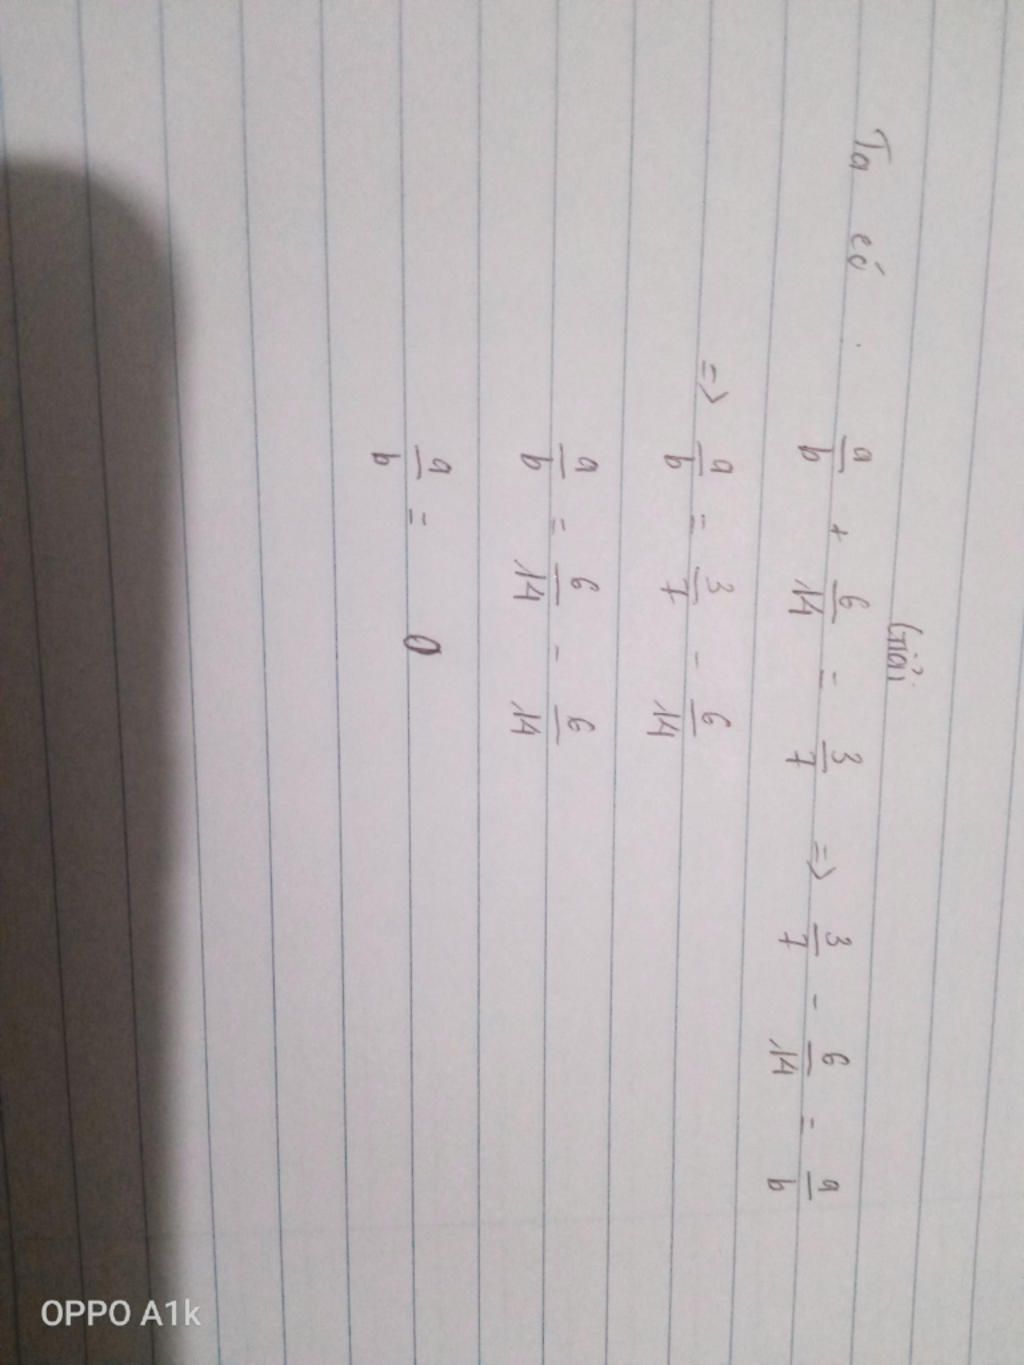 Giải
Ta có : a/b + 6/14 = 3/7 => 3/7 - 6/14 = a/b
=> a/b = 3/7 - 6/14
a/b = 6/14 - 6/14
a/b = 0
OPPO A1k